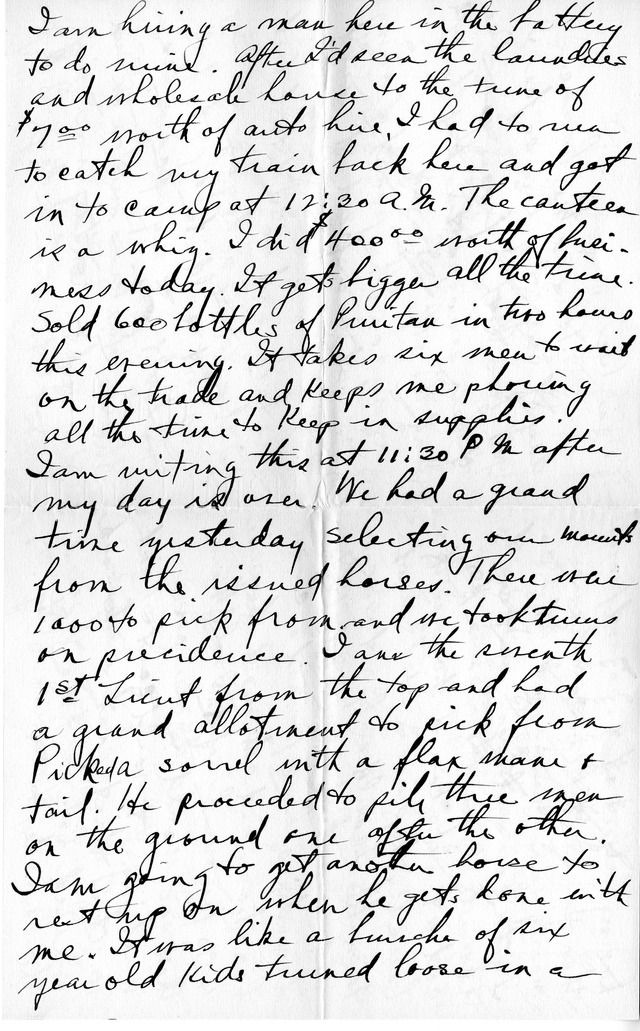 I am hiring a man here in the battery
to do mine. After I'd seen the laundries
and wholesale house to the tune of
$7.00 worth of auto hire, I had to run
to catch my train back here and got
in to camp at 12:30 A.M. The canteen
is a whiz. I did $400.00 worth of busi-
ness today. It gets bigger all the time.
Sold 600 bottles of Puritan in two hours
this evening. It takes six men to wait
on the trade and keeps me phoning
all the time to keep in supplies.
I am writing this at 11:30 P M after
my day is over. We had a grand
time yesterday selecting our mounts
from the issued horses. There were
1000 to pick from and we took turns
on precidence. I am the seventh
1st Lieut from the top and had
a grand allotment to pick from
Picked a sorrel with a flax mane &
tail. He proceeded to pile three men
on the ground one after the other.
I am going to get another horse to
rest up on when he gets done with
me. It was like a bunch of six
year old kids turned loose in a